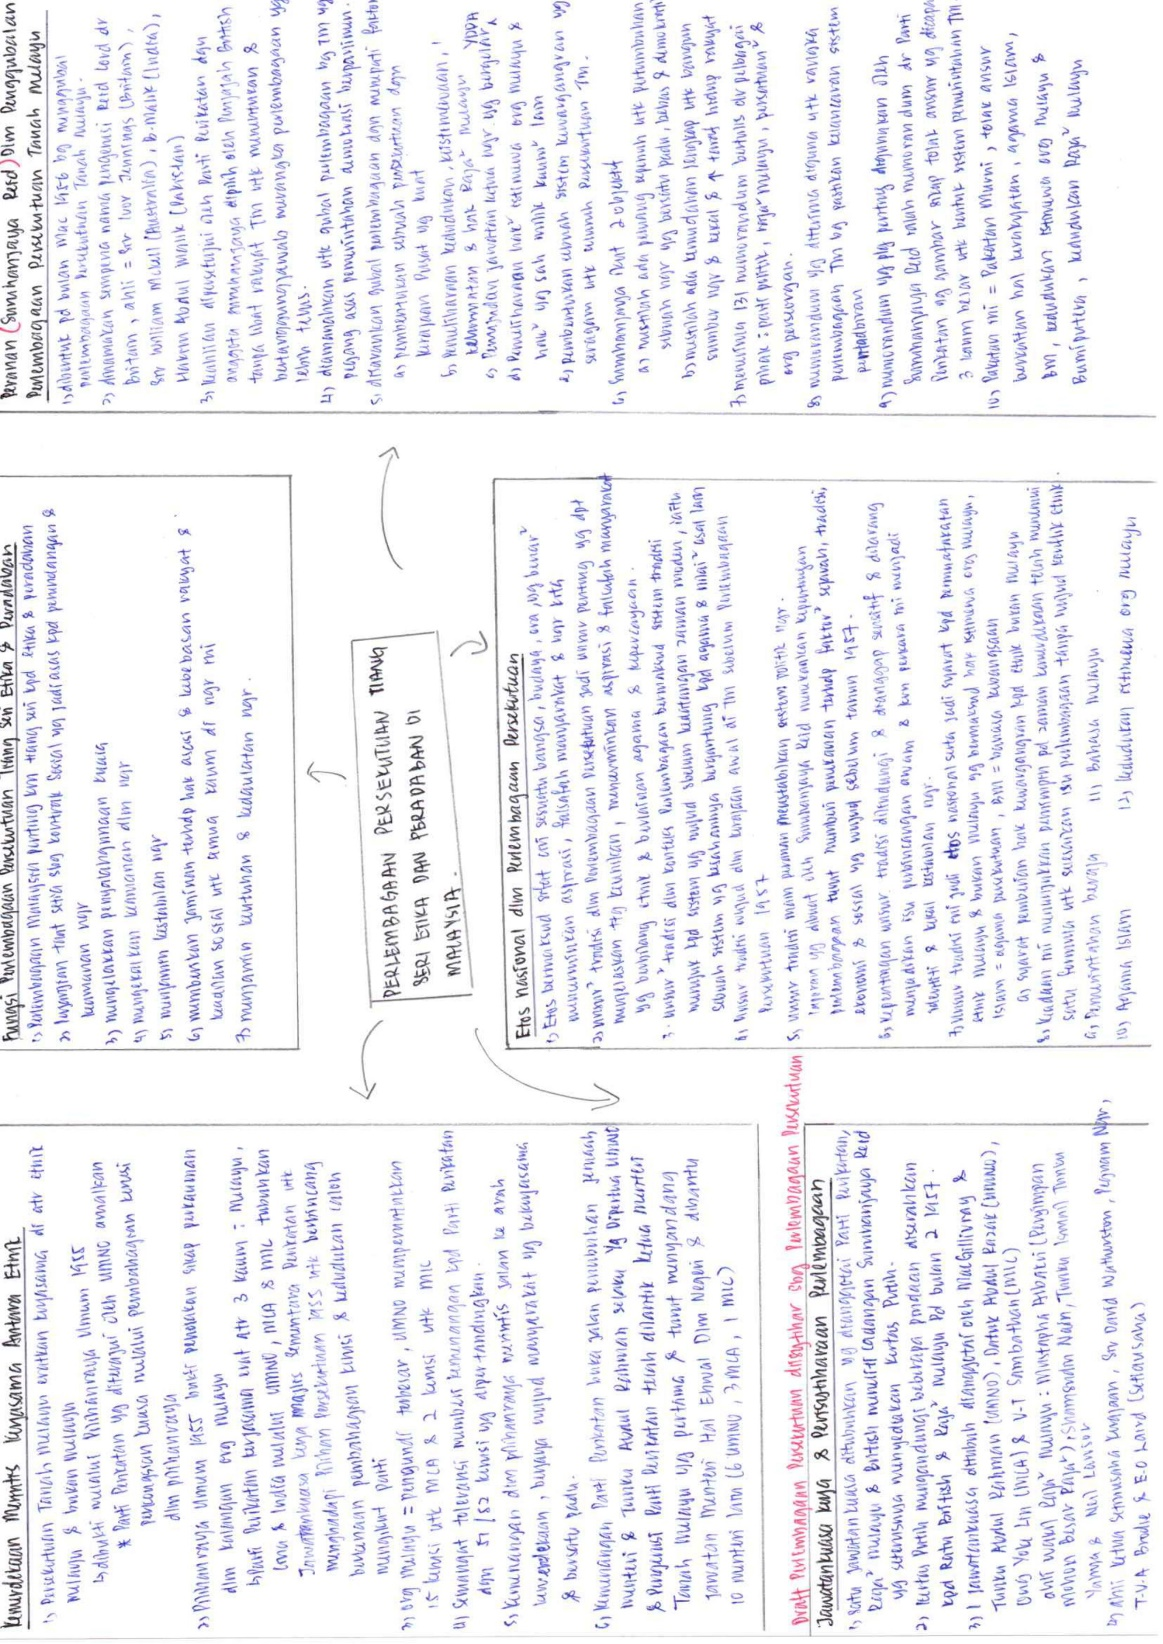 Kemerdekaan Merintis Kerjasama Antara Etnik
1) Persekutuan Tanah Melayu eratkan kerjasama di atr etnik
Melayu & bukan Melayu
↳ dibukti melalui Pilihanraya Umum 1955
* Parti Perikatan yg diterajui oleh UMNO amalkan
perkongsian kuasa melalui pembahagian kerusi
dlm pilihanraya
2) Pilihanraya Umum 1955 bukti penolakan sikap perkauman
dlm kalangan org Melayu
↳ Parti Perikatan kerjasama erat atr 3 kaum : Melayu,
Cina & India melalui UMNO, MCA & MIC tubuhkan
Jawatankuasa Kerja Majlis Sementara Perikatan utk
menghadapi Pilihan Persekutuan 1955 utk berbincang
berkenaan pembahagian kerusi & kedudukan calon
mengikut parti
3) Org Melayu = pengundi terbesar, UMNO memperuntukkan
15 kerusi utk MCA & 2 kerusi utk MIC
4) Semangat toleransi memberi kemenangan kpd Parti Perikatan
dgn 51/52 kerusi yg dipertandingkan.
5) Kemenangan dlm pilihanraya merintis jalan ke arah
kemerdekaan, supaya wujud masyarakat yg bekerjasama
& bersatu padu.
6) Kemenangan Parti Perikatan buka jalan penubuhan Jemaah
Menteri & Tunku Abdul Rahman selaku Yg Dipertua UMNO
& Pengerusi Parti Perikatan telah dilantik Ketua Menteri
Tanah Melayu yg pertama & turut menyandang
jawatan Menteri Hal Ehwal Dlm Negeri & dibantu
10 menteri lain (6 UMNO, 3 MCA, 1 MIC)
Draft Perlembagaan Persekutuan diisytihar sbg Perlembagaan Persekutuan
Jawatankuasa Kerja & Perisytiharaan Perlembagaan
1) Satu jawatankuasa ditubuhkan yg dianggotai Parti Perikatan,
Raja² Melayu & British meneliti cadangan Suruhanjaya Reid
yg seterusnya menyediakan Kertas Putih.
2) Kertas Putih mengandungi beberapa pindaan diserahkan
kpd Ratu British & Raja² Melayu pd bulan 2 1957.
3) 1 Jawatankuasa ditubuh dianggotai oleh MacGillivray &
Tunku Abdul Rahman (UMNO), Datuk Abdul Razak (UMNO),
Ong Yoke Lin (MCA) & V.T Sambathan (MIC)
ahli wakil Raja² Melayu : Mustapha Albakri (Penyimpan
Mohor Besar Raja²), Shamsudin Naim, Tunku Ismail Tunku
Yahya & Neil Lawson
4) Ahli Ketua Setiausaha Kerajaan, Sir David Watherston, Peguam Ngr,
T.V.A Brodie & E.O Laird (Setiausaha)
Fungsi Perlembagaan Persekutuan Tiang Seri Etika & Peradaban
1) Perlembagaan Malaysia penting krn tiang seri kpd etika & peradaban
2) Lapangan taat setia sbg kontrak sosial yg jadi asas kpd perundangan &
keamanan ngr
3) mengelakkan penyalahgunaan kuasa
4) mengekalkan keamanan dlm ngr
5) menjamin kestabilan ngr
6) memberikan jaminan terhdp hak asasi & kebebasan rakyat &
keadilan sosial utk semua kaum di ngr ini
7) menjamin keutuhan & kedaulatan ngr.
PERLEMBAGAAN PERSEKUTUAN TIANG
SERI ETIKA DAN PERADABAN DI
MALAYSIA.
Etos Nasional dlm Perlembagaan Persekutuan
1) Etos bermaksud sifat ciri sesuatu bangsa, budaya, era, yg benar²
mencerminkan aspirasi, falsafah masyarakat & ngr kita
2) Unsur² tradisi dlm Perlembagaan Persekutuan jadi unsur penting yg dpt
menjelaskan ttg keunikan, mencerminkan aspirasi & falsafah masyarakat
yg berbilang etnik & berlainan agama & kepercayaan.
3. Unsur² tradisi dlm konteks Perlembagaan bermaksud sistem tradisi
merujuk kpd sistem yg wujud sbelum kedatangan zaman moden, iaitu
sebuah sistem yg keabsahannya bergantung kpd agama & nilai² asal lain
4) Unsur tradisi wujud dlm kerajaan awal di TM sebelum Perlembagaan
Persekutuan 1957
5) unsur tradisi main peranan menstabilkan sistem politik ngr.
laporan yg dibuat oleh Suruhanjaya Reid menekankan kepentingan
perlembagaan turut memberi penekanan terhdp faktor² sejarah, tradisi,
ekonomi & sosial yg wujud sebelum tahun 1957.
6) Kepentingan unsur² tradisi dilindungi & dianggap sensitif & dilarang
menjadikan isu perbincangan awam & krn perkara ini menjadi
identiti & kekal kestabilan ngr.
7) Unsur tradisi ini jadi etos nasional serta jadi syarat kpd permuafakatan
etnik Melayu & bukan Melayu yg bermaksud hak istimewa org Melayu,
Islam = agama persekutuan, BM = bahasa kebangsaan
a) syarat pemberian hak kewarganegaraan kpd etnik bukan Melayu
8) Keadaan ini menunjukkan pemimpin pd zaman kemerdekaan telah menemui
satu formula utk selesaikan isu perlembagaan tanpa wujud konflik etnik.
9) Pemerintahan beraja 11) Bahasa Melayu
10) Agama Islam 12) Kedudukan istimewa org Melayu
Peranan (Suruhanjaya Reid) Dlm Penggubalan
Perlembagaan Persekutuan Tanah Melayu
1) dibentuk pd bulan Mac 1956 bg menggubal
Perlembagaan Persekutuan Tanah Melayu.
2) dinamakan sempena nama pengerusi Reid Lord dr
Britain, ahli = Sir Ivor Jennings (Britain),
Sir William McKell (Australia), B. Malik (India),
Hakim Abdul Halik (Pakistan)
3) Keahlian dipersetujui oleh Parti Perikatan dgn
anggota suruhanjaya dipilih oleh Penjajah British
tanpa libat rakyat TM utk memastikan &
bertanggungjawab merangka perlembagaan yg
lebih telus.
4) diamanahkan utk gubal perlembagaan bg TM yg
pegang asas pemerintahan demokrasi berparlimen.
5) diarahkan gubal perlembagaan dgn menepati faktor
a) pembentukan sebuah persekutuan dgn
kerajaan Pusat yg kuat
b) Pemeliharaan kedudukan, keistimewaan,
kehormatan & hak Raja² Melayu
c) Penwujudan jawatan ketua ngr yg bergelar YDPA
d) Pemeliharaan hak² istimewa org Melayu &
hak² yg sah milik kaum² lain
e) Pembentukan sebuah sistem kewarganegaraan yg
seragam utk seluruh Persekutuan TM.
6) Suruhanjaya buat 2 objektif
a) mestilah ada peluang sepenuh utk pertumbuhan
sebuah ngr yg bersatu padu, bebas & demokratik
b) mestilah ada kemudahan lengkap utk bangun
sumber ngr & kekal & ↑ taraf hidup rakyat
7) menerima 131 memorandum bertulis dr pelbagai
pihak : parti politik, raja² Melayu, persatuan² &
org perseorangan.
8) memorandum yg diterima diguna utk rangka
perlembagaan TM bg pastikan kelancaran sistem
pentadbiran
9) memorandum yg plg penting digunakan oleh
Suruhanjaya Reid ialah memorandum dr Parti
Perikatan yg gambar sikap tolak ansur yg dicapai
3 kaum besar utk bentuk sistem pemerintahan TM.
10) Pakatan ini = Pakatan Murni, tolak ansur
berkaitan hal kerakyatan, agama Islam,
BM, kedudukan istimewa org Melayu &
Bumiputera, kedaulatan Raja² Melayu